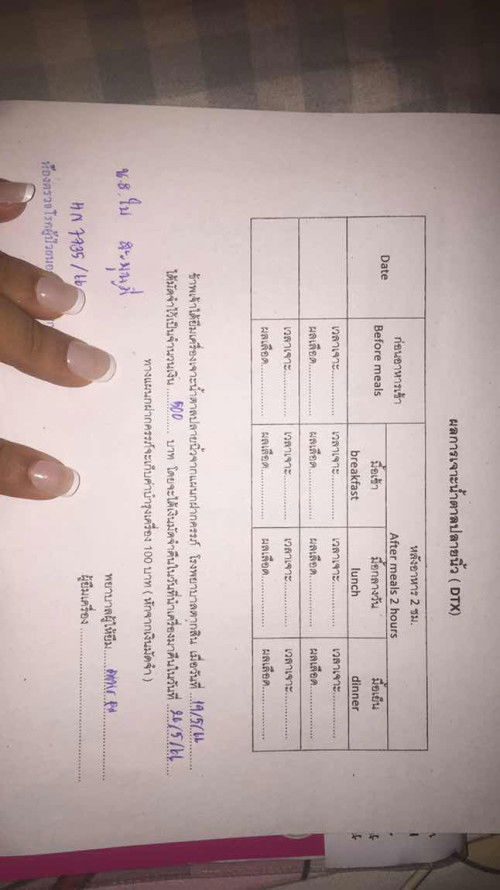 ผลการเจาะน้ำตาลปลายนิ้ว ( DTX)
Date
ก่อนอาหารเช้า
Before meals
หลังอาหาร 2 ชม.
After meals 2 hours
มื้อเช้า
breakfast
มื้อกลางวัน
lunch
มื้อเย็น
dinner
เวลาเจาะ............... เวลาเจาะ............... เวลาเจาะ............... เวลาเจาะ...............
ผลเลือด............... ผลเลือด............... ผลเลือด............... ผลเลือด...............
เวลาเจาะ............... เวลาเจาะ............... เวลาเจาะ............... เวลาเจาะ...............
ผลเลือด............... ผลเลือด............... ผลเลือด............... ผลเลือด...............
ข้าพเจ้าได้ยืมเครื่องเจาะน้ำตาลปลายนิ้วจากแผนกฝากครรภ์ โรงพยาบาลตากสิน เมื่อวันที่ ..19/5/66......
ได้มัดจำไว้เป็นจำนวนเงิน ......500...... บาท โดยจะได้เงินมัดจำคืนในวันที่นำเครื่องมาคืนในวันที่ ..26/5/66....
ทางแผนกฝากครรภ์จะเก็บค่าบำรุงเครื่อง 100 บาท ( หักจากเงินมัดจำ )
น.ส. ใบ
พยาบาลผู้ให้ยืม
HN 7735/66
ผู้ยืมเครื่อง
ห้องตรวจโรคผู้ป่วยนอก